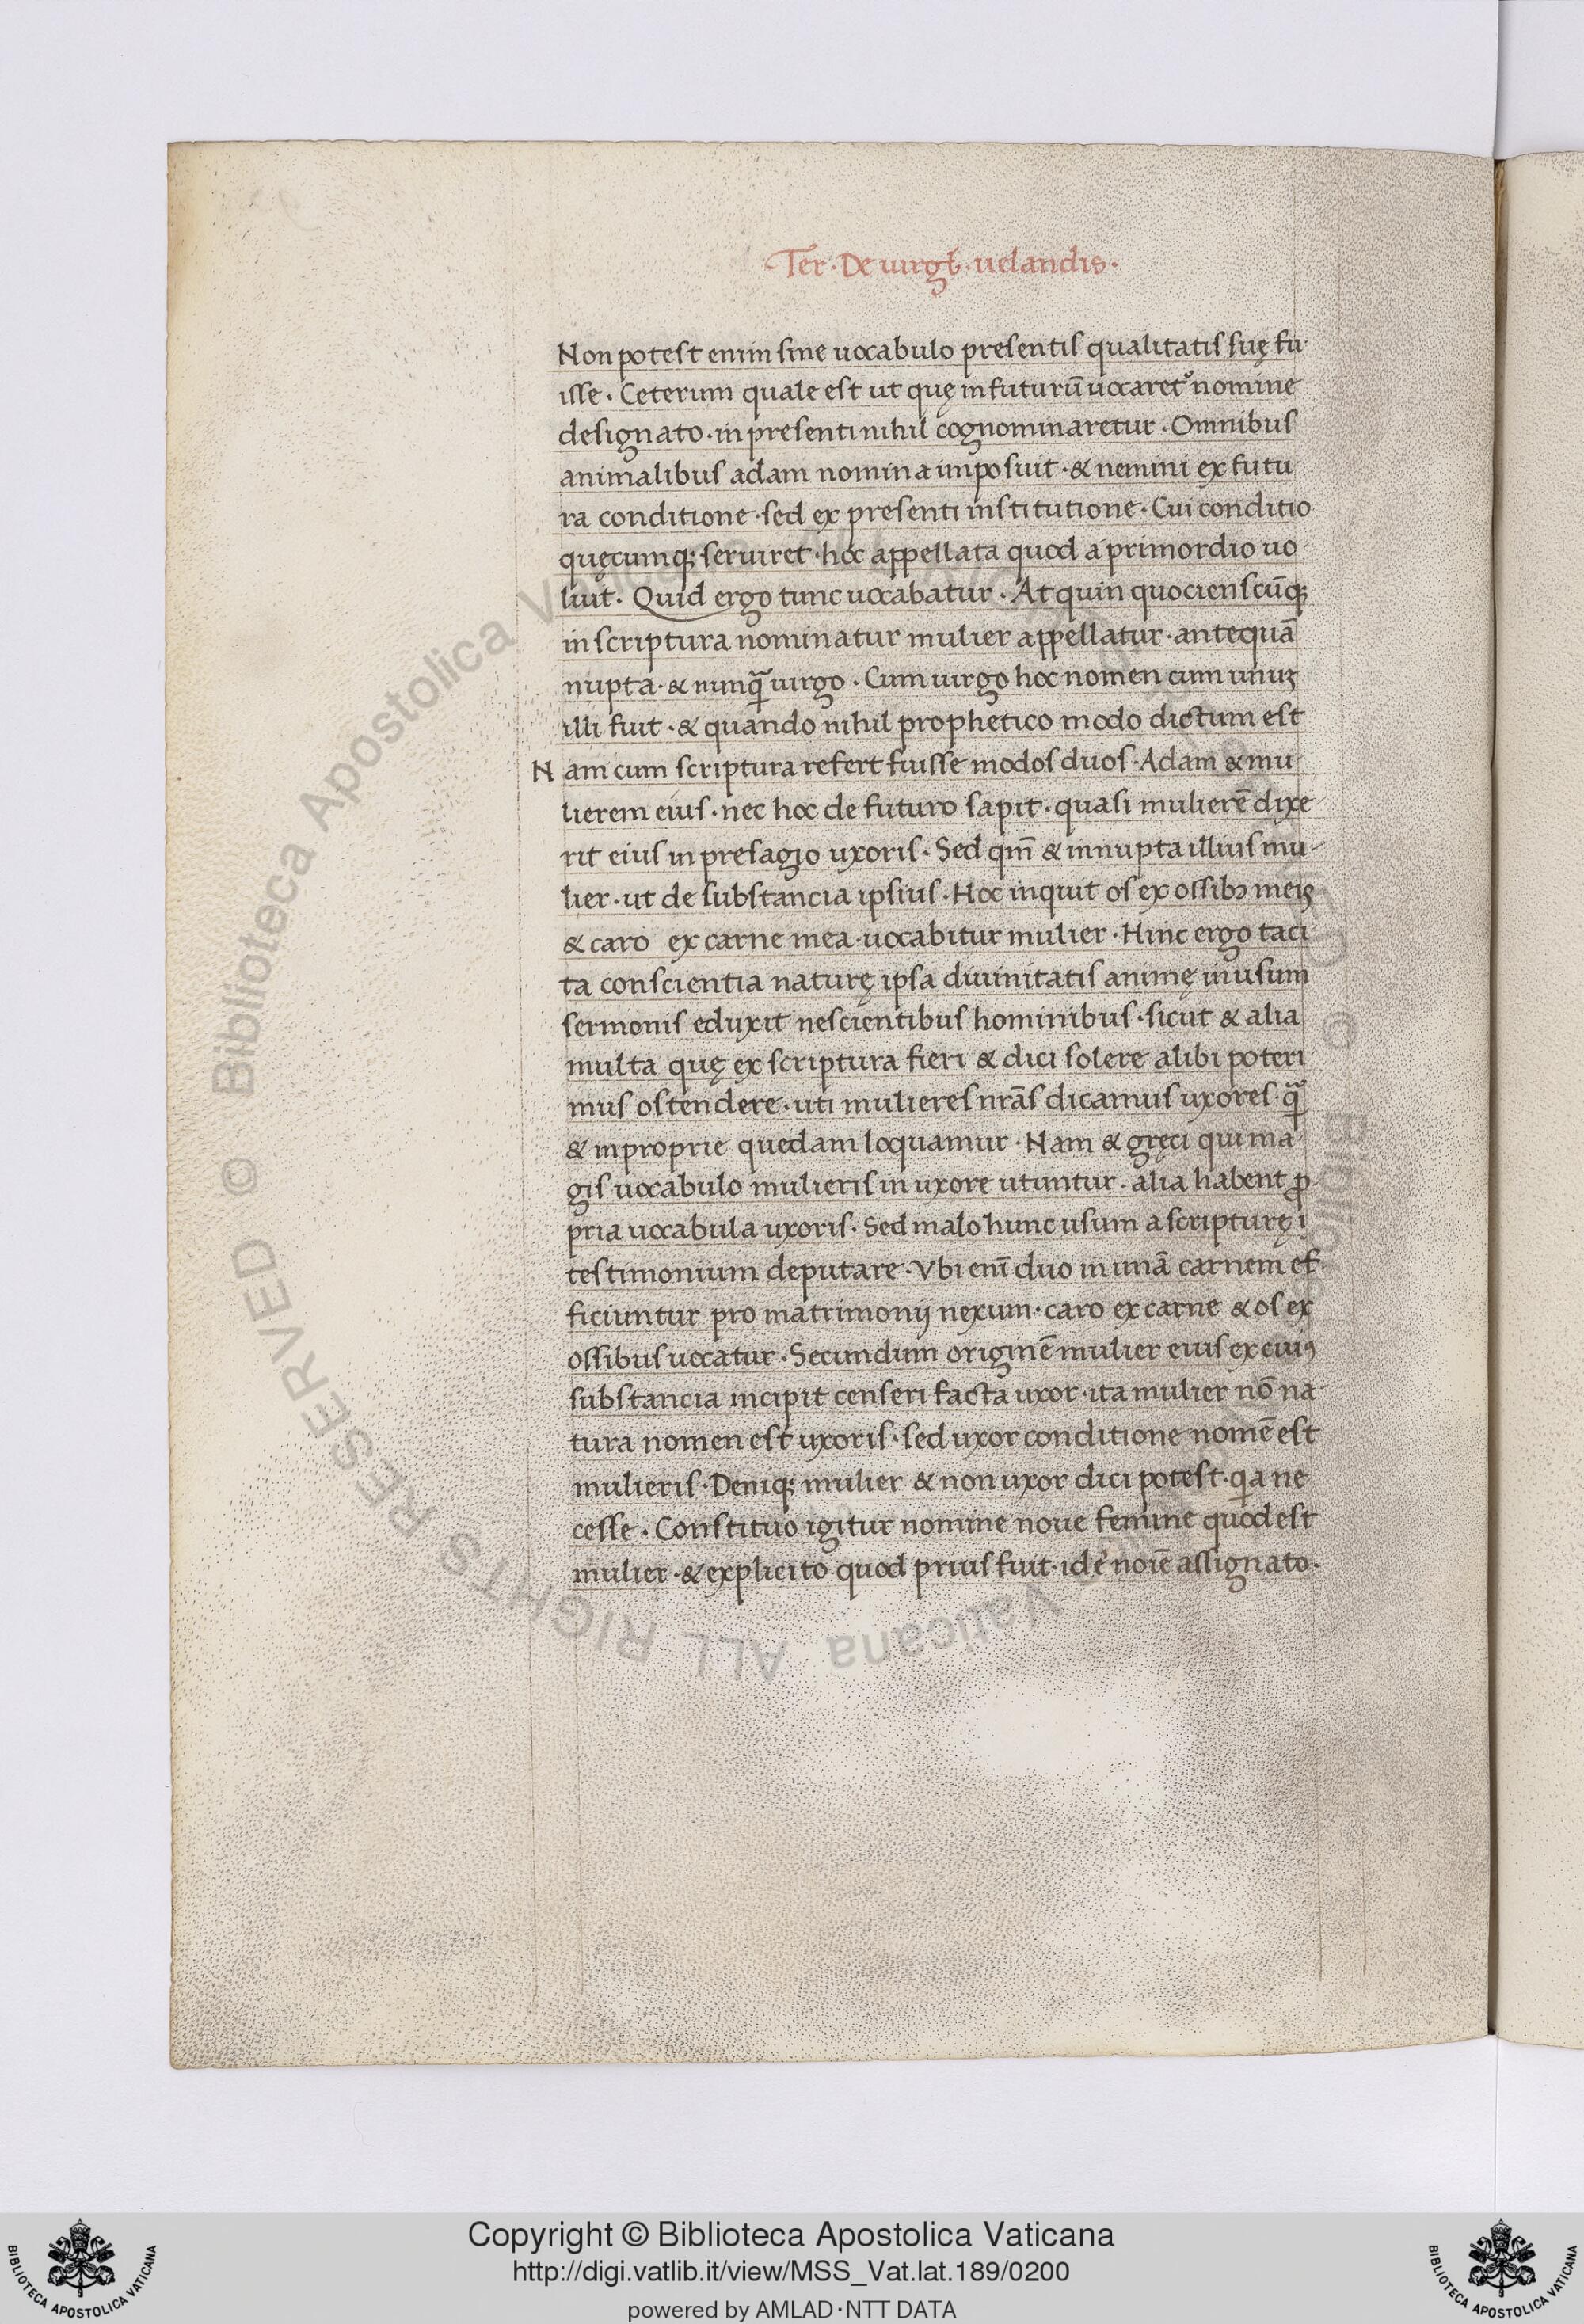 ·Ter·De uirgĪ·uelandis·
Non potest enim sine uocabulo presentis qualitatis suę fu-
isse· Ceterum quale est ut quę in futurū uocaret᷑ nomine
designato·in presenti nihil cognominaretur·Omnibus
animalibus adam nomina imposuit·& nemini ex futu
ra conditione·sed ex presenti institutione·Cui conditio
quęcumq; seruiret·hoc appellata quod a primordio uo-
luit· Quid ergo tunc uocabatur· At quin quocienscūq;
in scriptura nominatur mulier appellatur·antequā
nupta·& nunq̄ uirgo· Cum uirgo hoc nomen cum unuʒ
illi fuit·& quando nihil prophetico modo dictum est
Nam cum scriptura refert fuisse modos duos·Adam & mu-
lierem eius·nec hoc de futuro sapit·quasi mulierē dixe-
rit eius in presagio uxoris·Sed qm̄ & innupta illius mu-
lier·ut de substancia ipsius·Hoc inquit os ex ossibꝫ meis
& caro ex carne mea·uocabitur mulier·Hinc ergo taci
ta conscientia naturę ipsa diuinitatis animę in usum
sermonis eduxit nescientibus hominibus·sicut & alia
multa quę ex scriptura fieri & dici solere alibi poteri
mus ostendere·uti mulieres nrās dicamus uxores·q̄
& inproprie quedam loquamur·Nam & gręci qui ma-
gis uocabulo mulieris in uxore utuntur·alia habent ꝓ-
pria uocabula uxoris·Sed malo hunc usum a scripturę i
testimonium deputare·Vbi enī duo in unā carnem ef
ficiuntur pro matrimonij nexum·caro ex carne & os ex
ossibus uocatur·Secundum originē mulier eius ex cuiꝰ
substancia incipit censeri facta uxor·ita mulier nō na-
tura nomen est uxoris·sed uxor conditione nomē est
mulieris·Deniq; mulier & non uxor dici potest·qia ne
cesse· Constituo igitur nomine noue femine quod est
mulier·& explicito quod prius fuit·idē noīe assignato·
Biblioteca Apostolica Vaticana ALL RIGHTS RESERVED ©
BIBLIOTECA APOSTOLICA VATICANA
Copyright © Biblioteca Apostolica Vaticana
http://digi.vatlib.it/view/MSS_Vat.lat.189/0200
powered by AMLAD·NTT DATA
BIBLIOTECA APOSTOLICA VATICANA